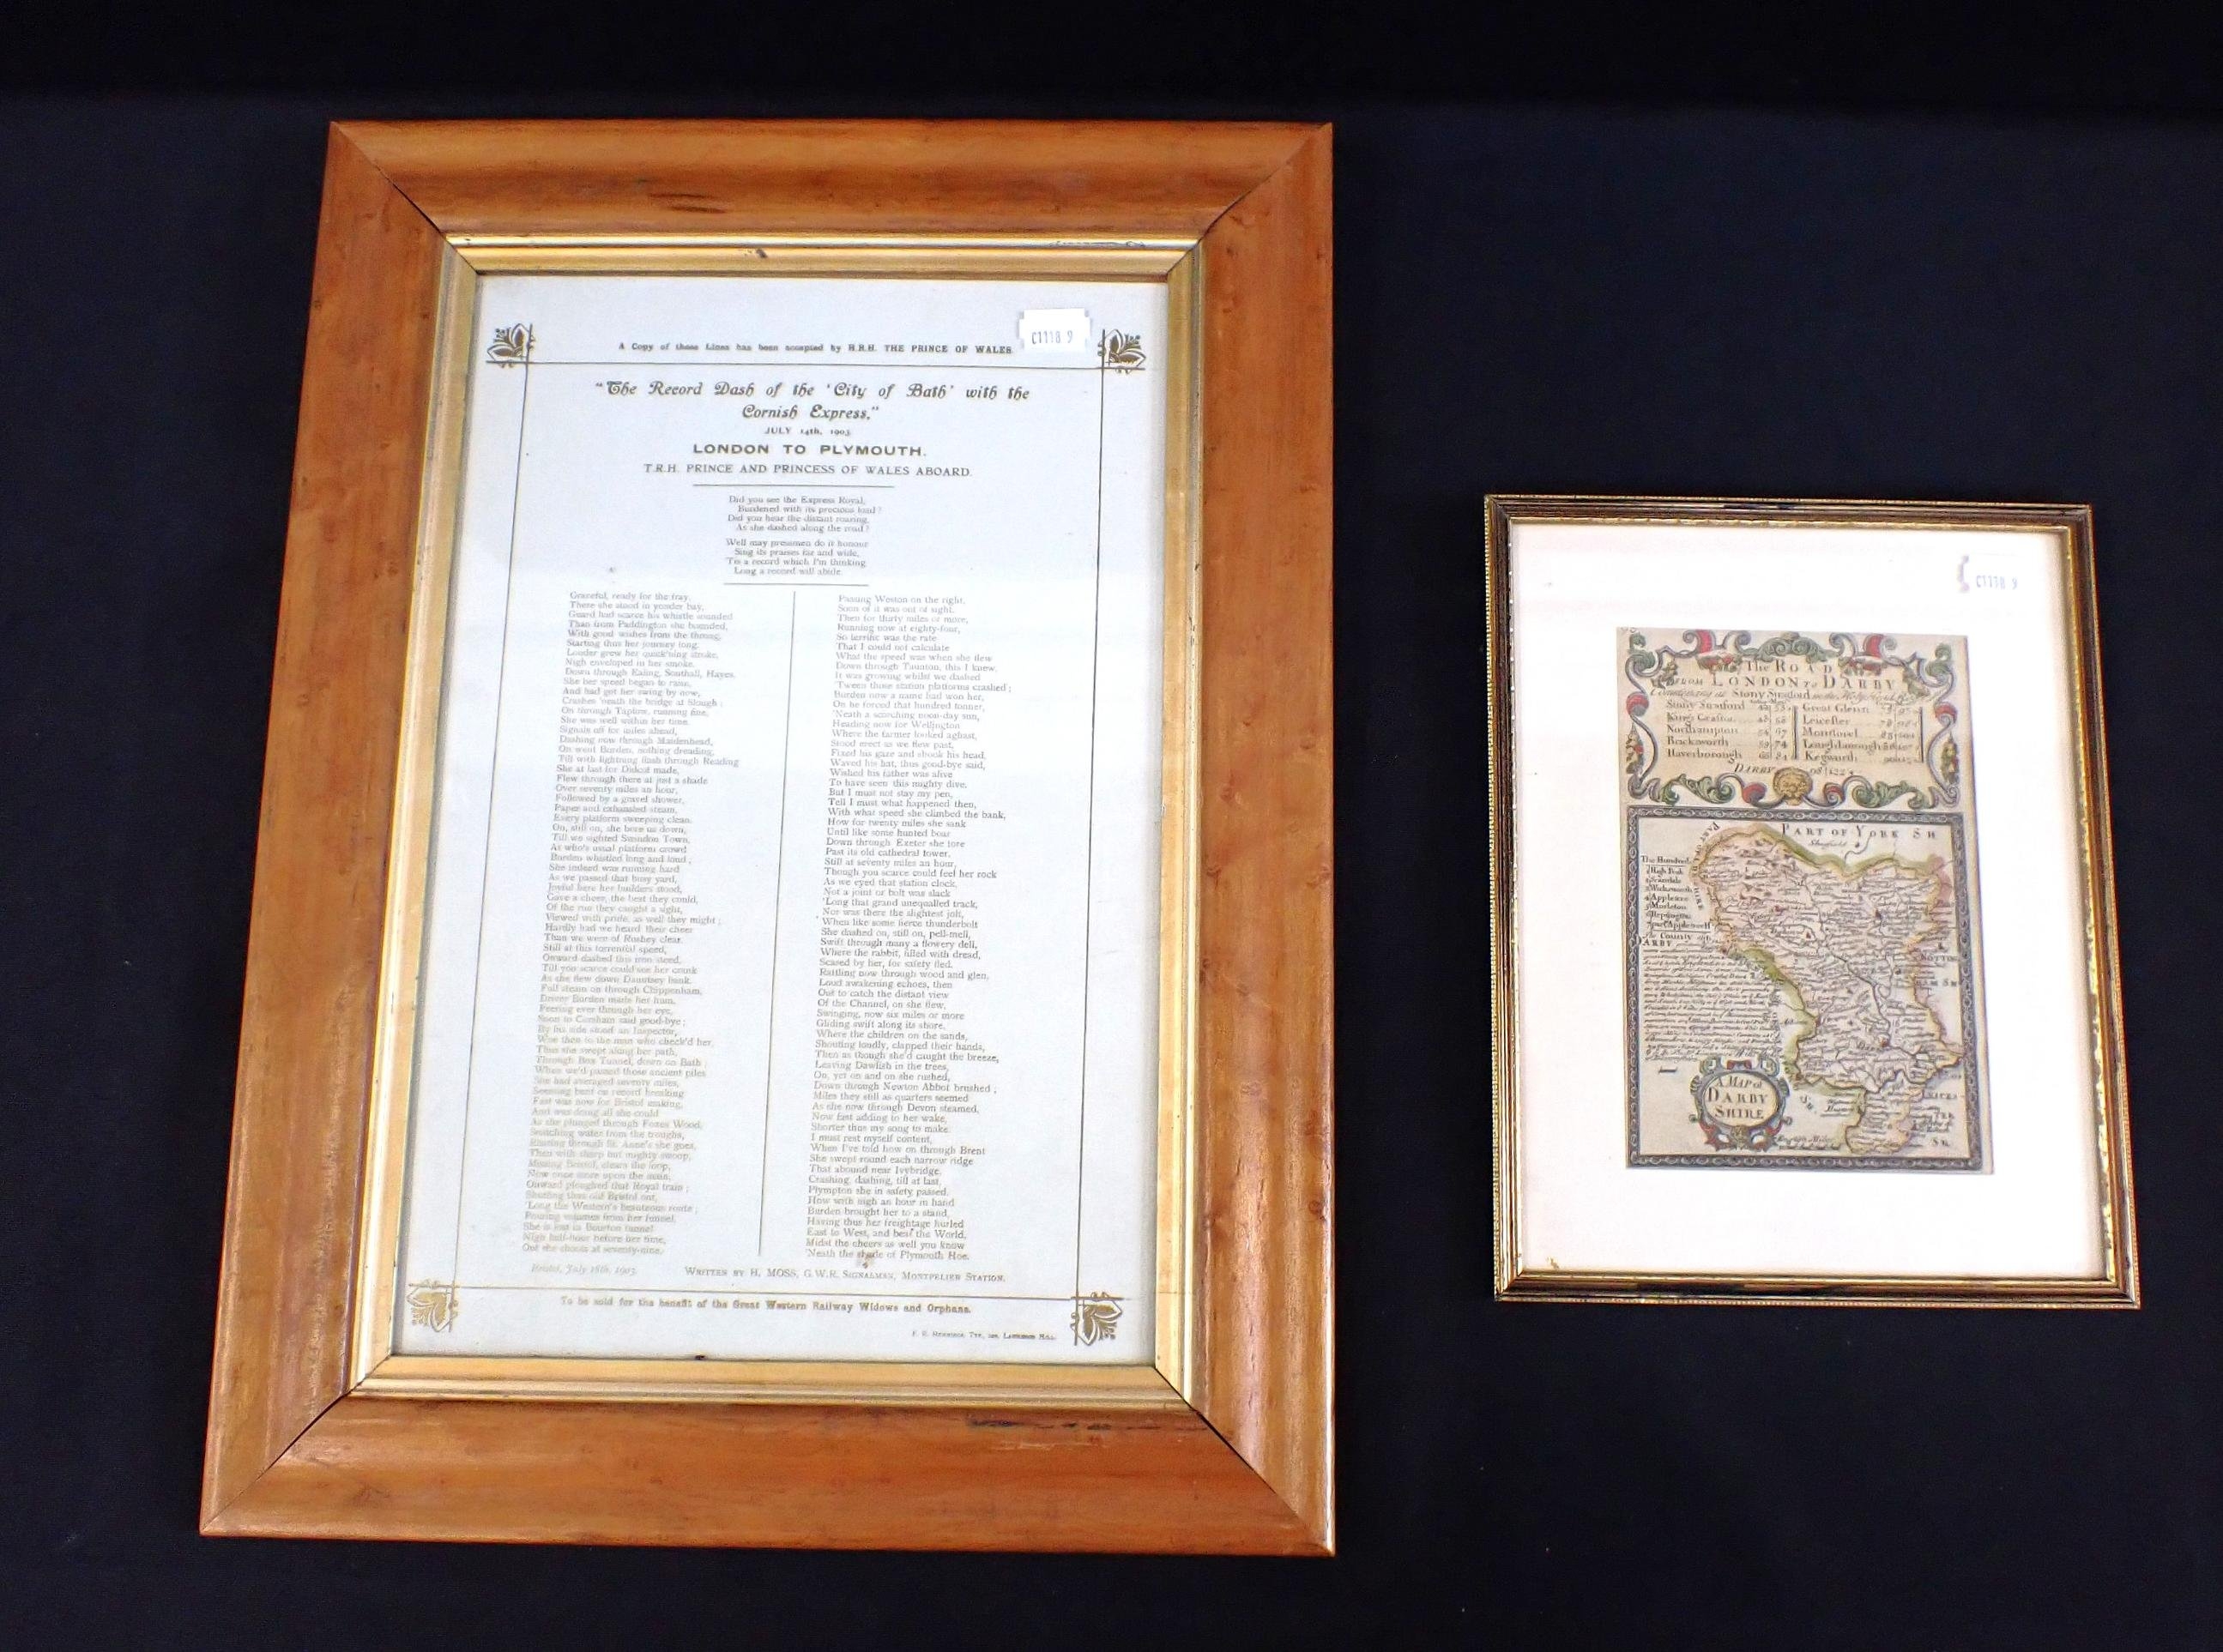 A Copy of these Lines has been accepted by H.R.H. THE PRINCE OF WALES
C1118 9
"The Record Dash of the 'City of Bath' with the
Cornish Express."
JULY 14th, 1903.
LONDON TO PLYMOUTH.
T.R.H. PRINCE AND PRINCESS OF WALES ABOARD.
Did you see the Express Royal,
Burdened with its precious load?
Did you hear the distant roaring,
As she dashed along the road?
Well may pressmen do it honour
Sing its praises far and wide,
'Tis a record which I'm thinking
Long a record will abide.
Graceful, ready for the fray,
There she stood in yonder bay,
Guard had scarce his whistle sounded
Than from Paddington she bounded,
With good wishes from the throng,
Starting thus her journey long.
Louder grew her quick'ning stroke,
Nigh enveloped in her smoke.
Down through Ealing, Southall, Hayes.
She her speed began to raise,
And had got her swing by now,
Crashes 'neath the bridge at Slough;
On through Taplow, running fine,
She was well within her time.
Signals off for miles ahead,
Dashing now through Maidenhead,
On went Burden, nothing dreading,
Till with lightning flash through Reading
She at last for Didcot made,
Flew through there at just a shade
Over seventy miles an hour,
Followed by a gravel shower,
Paper and exhausted steam,
Every platform sweeping clean.
On, still on, she bore us down,
'Till we sighted Swindon Town,
As who's usual platform crowd
Burden whistled long and loud;
She indeed was running hard
As we passed that busy yard,
Joyful here her builders stood,
Gave a cheer, the best they could,
Of the run they caught a sight,
Viewed with pride, as well they might;
Hardly had we heard their cheer
Than we were of Rushey clear.
Still at this torrential speed,
Onward dashed this iron steed,
Till you scarce could see her crank
As she flew down Dauntsey bank.
Full steam on through Chippenham,
Driver Burden made her hum,
Peering ever through her eye,
Soon to Corsham said good-bye;
By his side stood an Inspector,
Woe then to the man who check'd her,
Thus she swept along her path,
Through Box Tunnel, down on Bath;
When we'd passed those ancient piles
She had averaged seventy miles,
Seeming bent on record breaking
Fast was now for Bristol making,
And was doing all she could
As she plunged through Foxes Wood,
Snatching water from the troughs,
through St. Anne's she goes,
Then with sharp but mighty swoop,
Missing Bristol, clears the loop,
Now once more upon the main,
Onward ploughed that Royal train;
Shutting thus old Bristol out,
'Long the Western's beauteous route;
Pouring volumes from her funnel,
She is lost in Bourton tunnel
Nigh half-hour before her time,
Out she shoots at seventy-nine.
Passing Weston on the right,
Soon of it was out of sight.
Then for thirty miles or more,
Running now at eighty-four,
So terrific was the rate
That I could not calculate
What the speed was when she flew
Down through Taunton, this I knew,
It was growing whilst we dashed
'Tween those station platforms crashed;
Burden now a name had won her,
On he forced that hundred tonner,
'Neath a scorching noon-day sun,
Heading now for Wellington
Where the farmer looked aghast,
Stood erect as we flew past,
Fixed his gaze and shook his head,
Waved his hat, thus good-bye said,
Wished his father was alive
To have seen this mighty dive.
But I must not stay my pen,
Tell I must what happened then,
With what speed she climbed the bank,
How for twenty miles she sank
Until like some hunted boar
Down through Exeter she tore
Past its old cathedral tower.
Still at seventy miles an hour,
Though you scarce could feel her rock
As we eyed that station clock,
Not a joint or bolt was slack
'Long that grand unequalled track,
Nor was there the slightest jolt,
When like some fierce thunderbolt
She dashed on, still on, pell-mell,
Swift through many a flowery dell,
Where the rabbit, filled with dread,
Scared by her, for safety fled.
Rattling now through wood and glen,
Loud awakening echoes, then
Out to catch the distant view
Of the Channel, on she flew,
Swinging, now six miles or more
Gliding swift along its shore,
Where the children on the sands,
Shouting loudly, clapped their hands,
Then as though she'd caught the breeze,
Leaving Dawlish in the trees,
On, yet on and on she rushed,
Down through Newton Abbot brushed;
Miles they still as quarters seemed
As she now through Devon steamed,
Now fast adding in her wake,
Shorter thus my song to make.
I must rest myself content,
When I've told how on through Brent
She swept round each narrow ridge
That abound near Ivybridge.
Crashing, dashing, till at last,
Plympton she in safety passed.
How with nigh an hour in hand
Burden brought her to a stand,
Having thus her freightage hurled
East to West, and beat the World,
Midst the cheers as well you know
'Neath the shade of Plymouth Hoe.
Bristol, July 18th, 1903.
WRITTEN BY H. MOSS, G.W.R. SIGNALMAN, MONTPELIER STATION.
To be sold for the benefit of the Great Western Railway Widows and Orphans.
C1118 9
The ROAD
FROM LONDON TO DARBY
Commencing at Stony Stratford
Stony Stratford
Northampton
Brixworth
Haverborough
Great Glenn
Leicester
Montsorel
Loughborough
Kegworth
DARBY 98 122
PART OF YORK SH
Sheffield
The Hundred
High Peak
Wirksworth
Appletree
Morleston
Repington
The County
DARBY
A MAP of
DARBY
SHIRE
English Miles